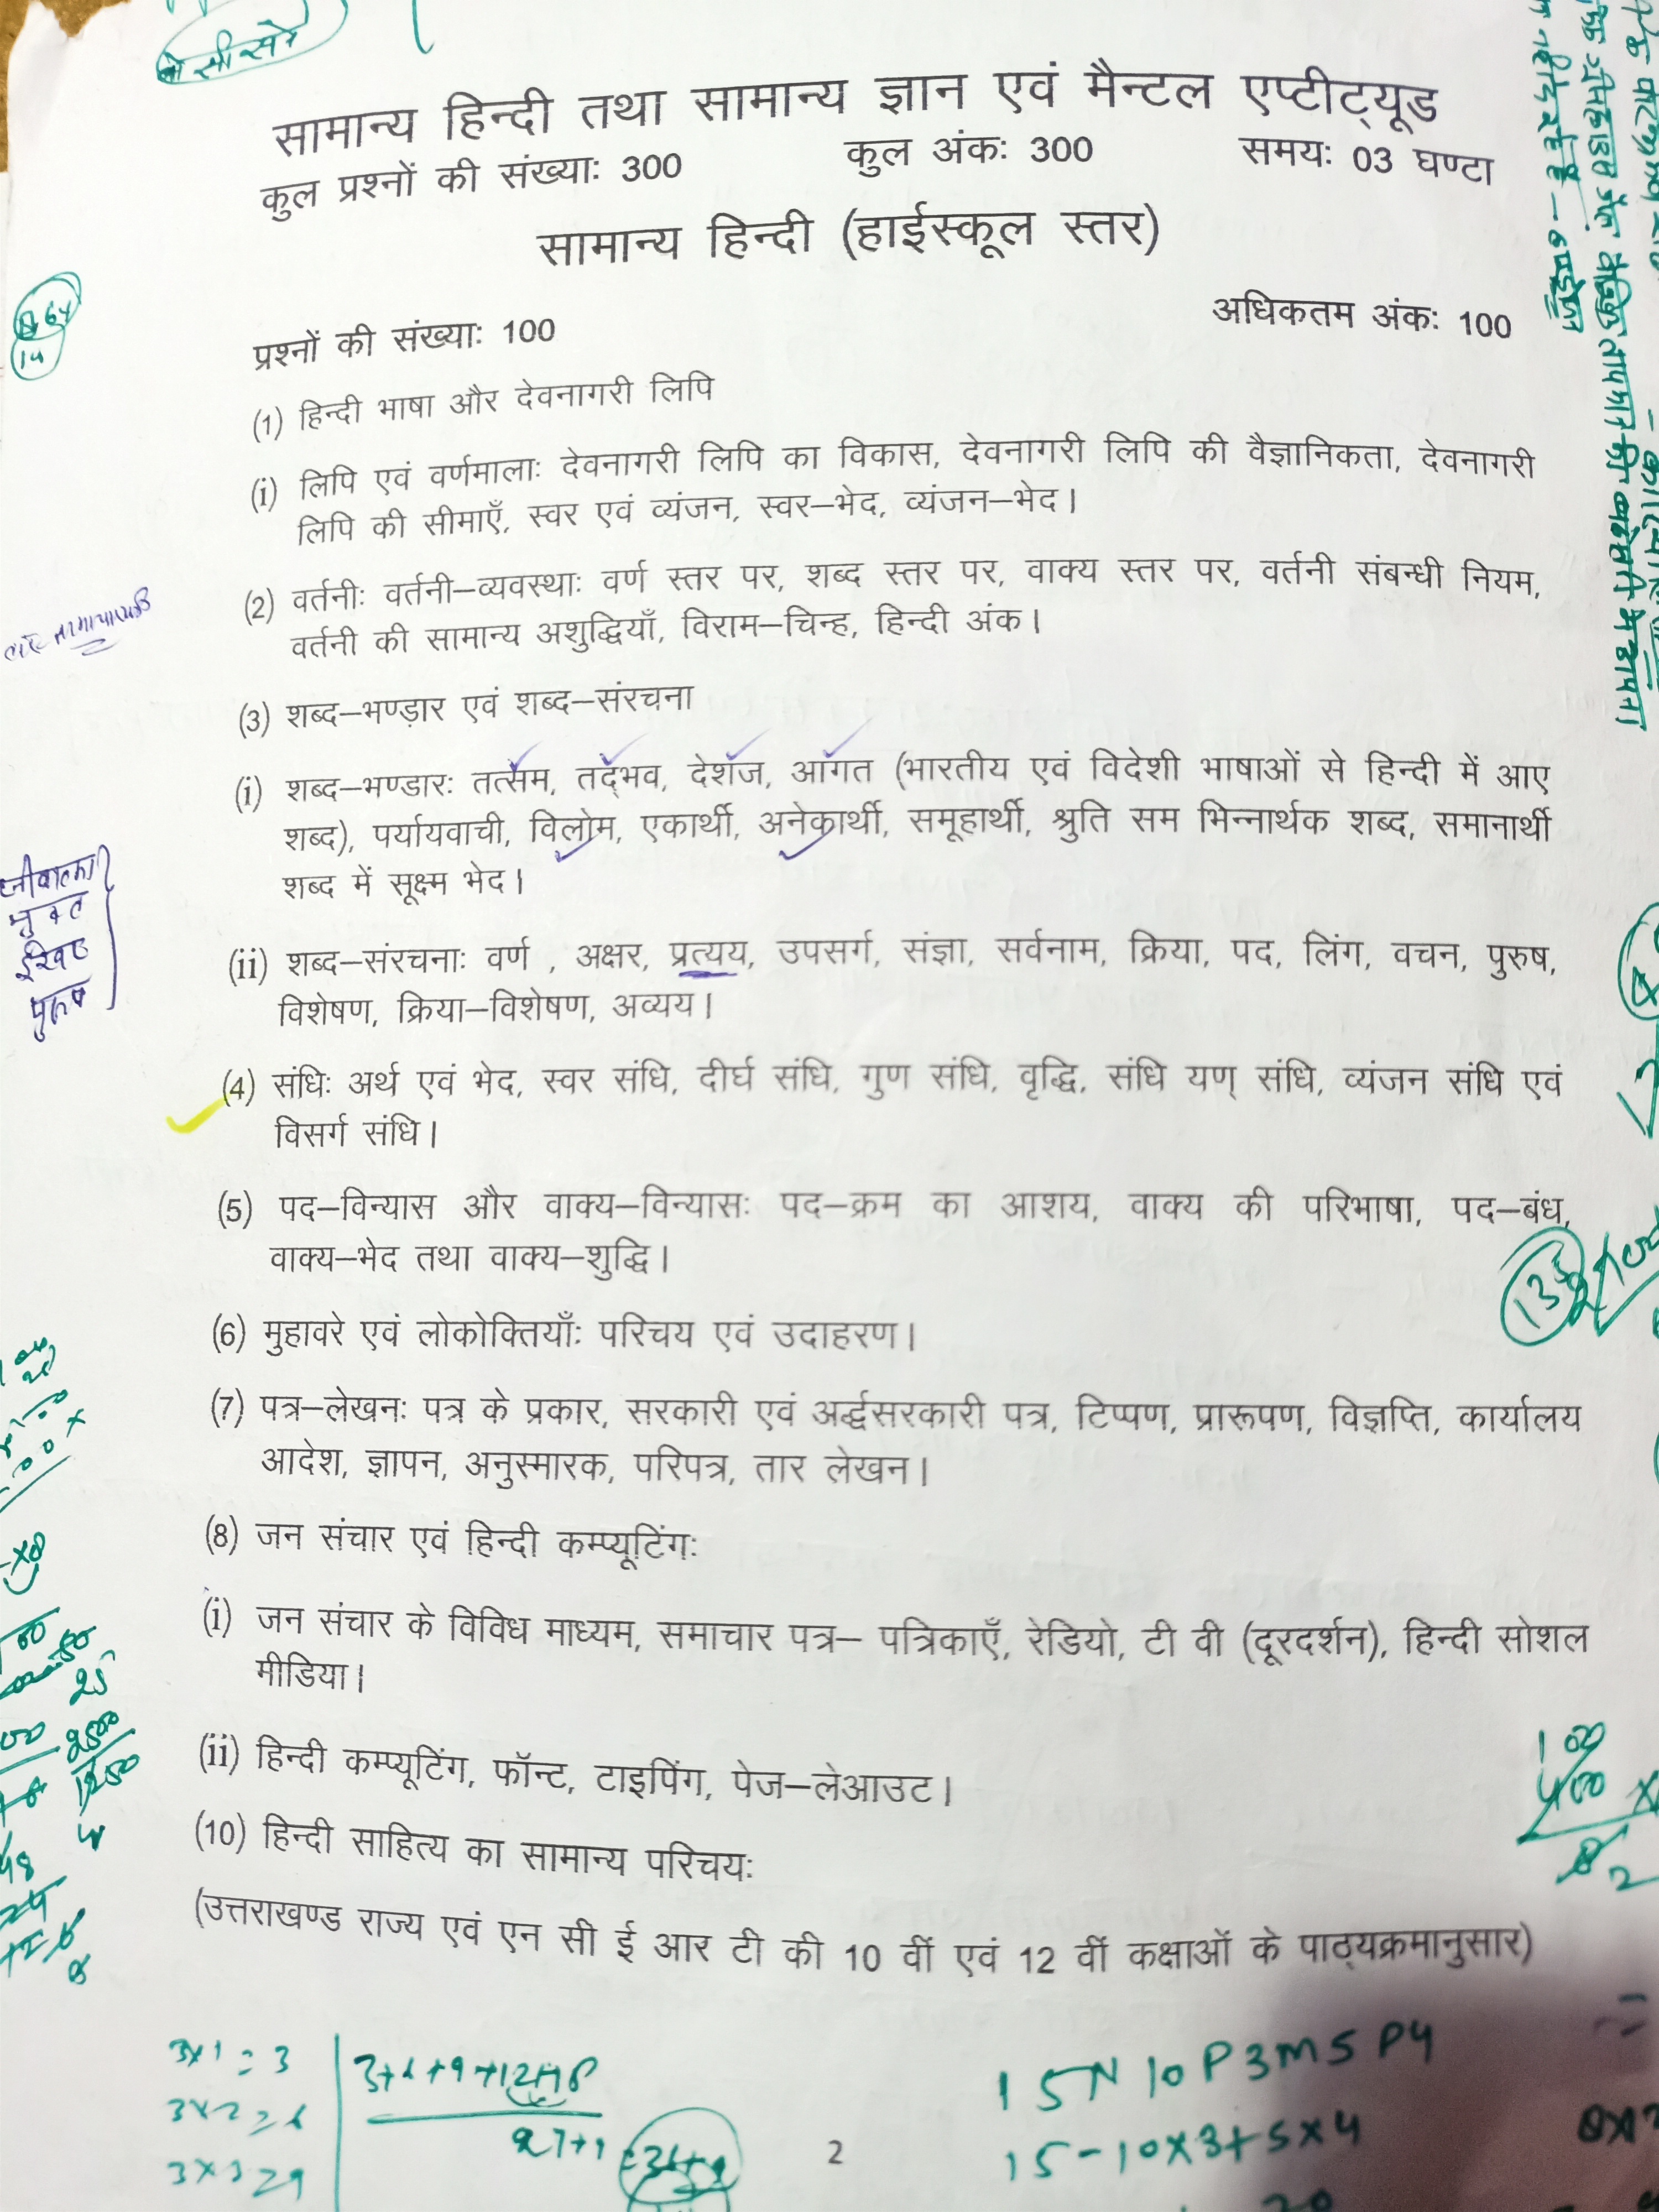 सामान्य हिन्दी तथा सामान्य ज्ञान एवं मैन्टल एप्टीट्यूड
कुल प्रश्नों की संख्याः 300 कुल अंकः 300 समयः 03 घण्टा
सामान्य हिन्दी (हाईस्कूल स्तर)
प्रश्नों की संख्याः 100 अधिकतम अंकः 100
(1) हिन्दी भाषा और देवनागरी लिपि
(i) लिपि एवं वर्णमालाः देवनागरी लिपि का विकास, देवनागरी लिपि की वैज्ञानिकता, देवनागरी
लिपि की सीमाएँ, स्वर एवं व्यंजन, स्वर–भेद, व्यंजन–भेद।
(2) वर्तनीः वर्तनी–व्यवस्थाः वर्ण स्तर पर, शब्द स्तर पर, वाक्य स्तर पर, वर्तनी संबन्धी नियम,
वर्तनी की सामान्य अशुद्धियाँ, विराम–चिन्ह, हिन्दी अंक।
(3) शब्द–भण्ड़ार एवं शब्द–संरचना
(i) शब्द–भण्डारः तत्सम, तद्भव, देशज, आगत (भारतीय एवं विदेशी भाषाओं से हिन्दी में आए
शब्द), पर्यायवाची, विलोम, एकार्थी, अनेकार्थी, समूहार्थी, श्रुति सम भिन्नार्थक शब्द, समानार्थी
शब्द में सूक्ष्म भेद।
(ii) शब्द–संरचनाः वर्ण , अक्षर, प्रत्यय, उपसर्ग, संज्ञा, सर्वनाम, क्रिया, पद, लिंग, वचन, पुरुष,
विशेषण, क्रिया–विशेषण, अव्यय।
(4) संधिः अर्थ एवं भेद, स्वर संधि, दीर्घ संधि, गुण संधि, वृद्धि, संधि यण् संधि, व्यंजन संधि एवं
विसर्ग संधि।
(5) पद–विन्यास और वाक्य–विन्यासः पद–क्रम का आशय, वाक्य की परिभाषा, पद–बंध,
वाक्य–भेद तथा वाक्य–शुद्धि।
(6) मुहावरे एवं लोकोक्तियाँः परिचय एवं उदाहरण।
(7) पत्र–लेखनः पत्र के प्रकार, सरकारी एवं अर्द्धसरकारी पत्र, टिप्पण, प्रारूपण, विज्ञप्ति, कार्यालय
आदेश, ज्ञापन, अनुस्मारक, परिपत्र, तार लेखन।
(8) जन संचार एवं हिन्दी कम्प्यूटिंगः
(i) जन संचार के विविध माध्यम, समाचार पत्र– पत्रिकाएँ, रेडियो, टी वी (दूरदर्शन), हिन्दी सोशल
मीडिया।
(ii) हिन्दी कम्प्यूटिंग, फॉन्ट, टाइपिंग, पेज–लेआउट।
(10) हिन्दी साहित्य का सामान्य परिचयः
(उत्तराखण्ड राज्य एवं एन सी ई आर टी की 10 वीं एवं 12 वीं कक्षाओं के पाठ्यक्रमानुसार)
3×1 = 3
3×2 = 6
3×3 = 9
27+9
15N 10P3M5P4
15-10×3+5×4
2